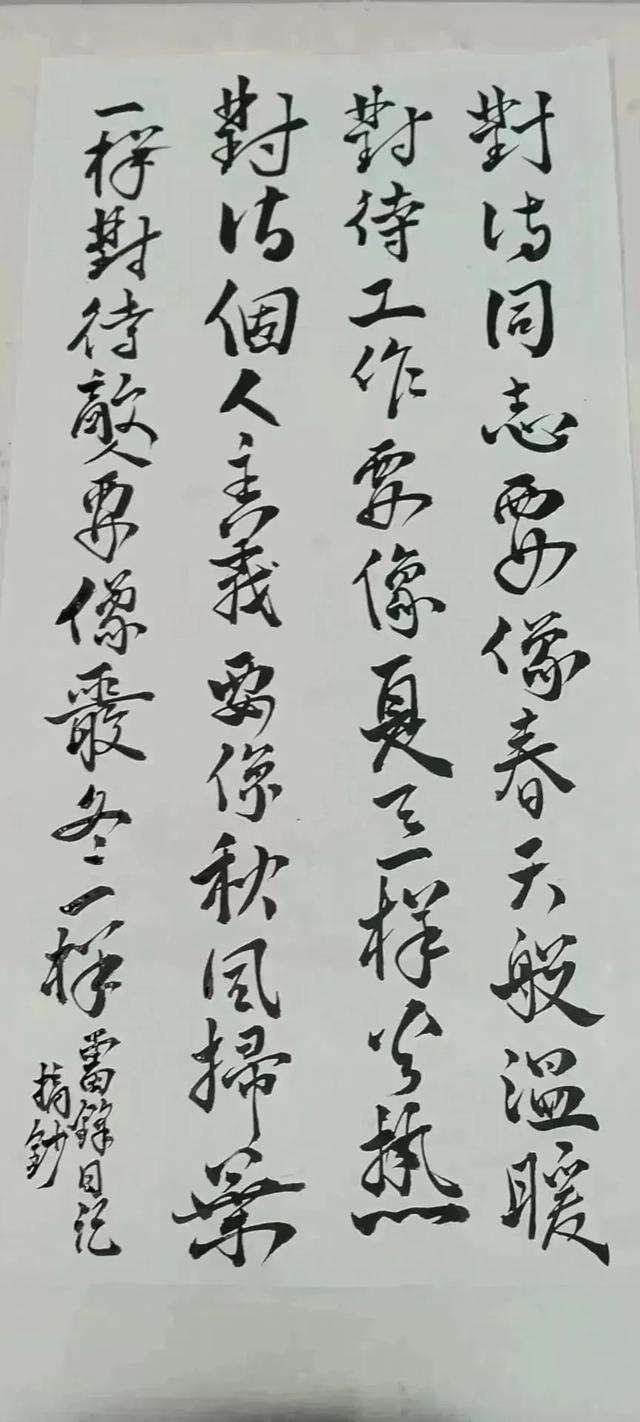 對待同志要像春天般温暖
對待工作要像夏天一样熱
對待個人主義要像秋風掃葉
一样對待敵人要像嚴冬一样
雷鋒日記
摘鈔